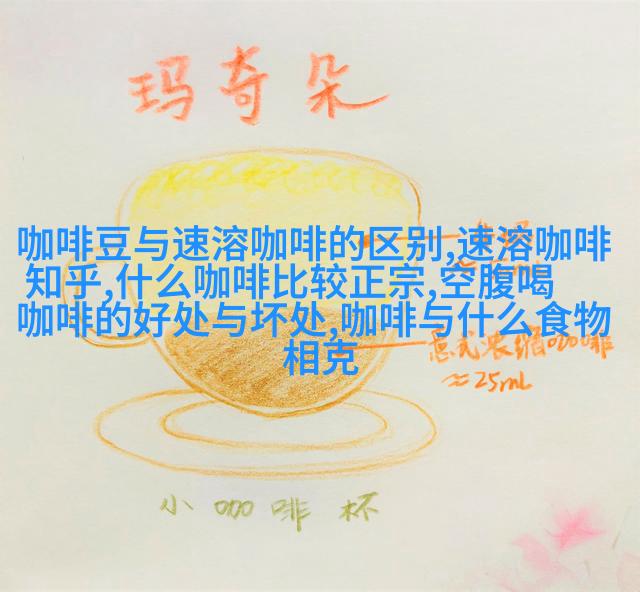 玛奇朵
咖啡豆与速溶咖啡的区别,速溶咖啡
知乎,什么咖啡比较正宗,空腹喝
咖啡的好处与坏处,咖啡与什么食物
相克
意式浓缩咖啡
≈25mL
小咖啡杯